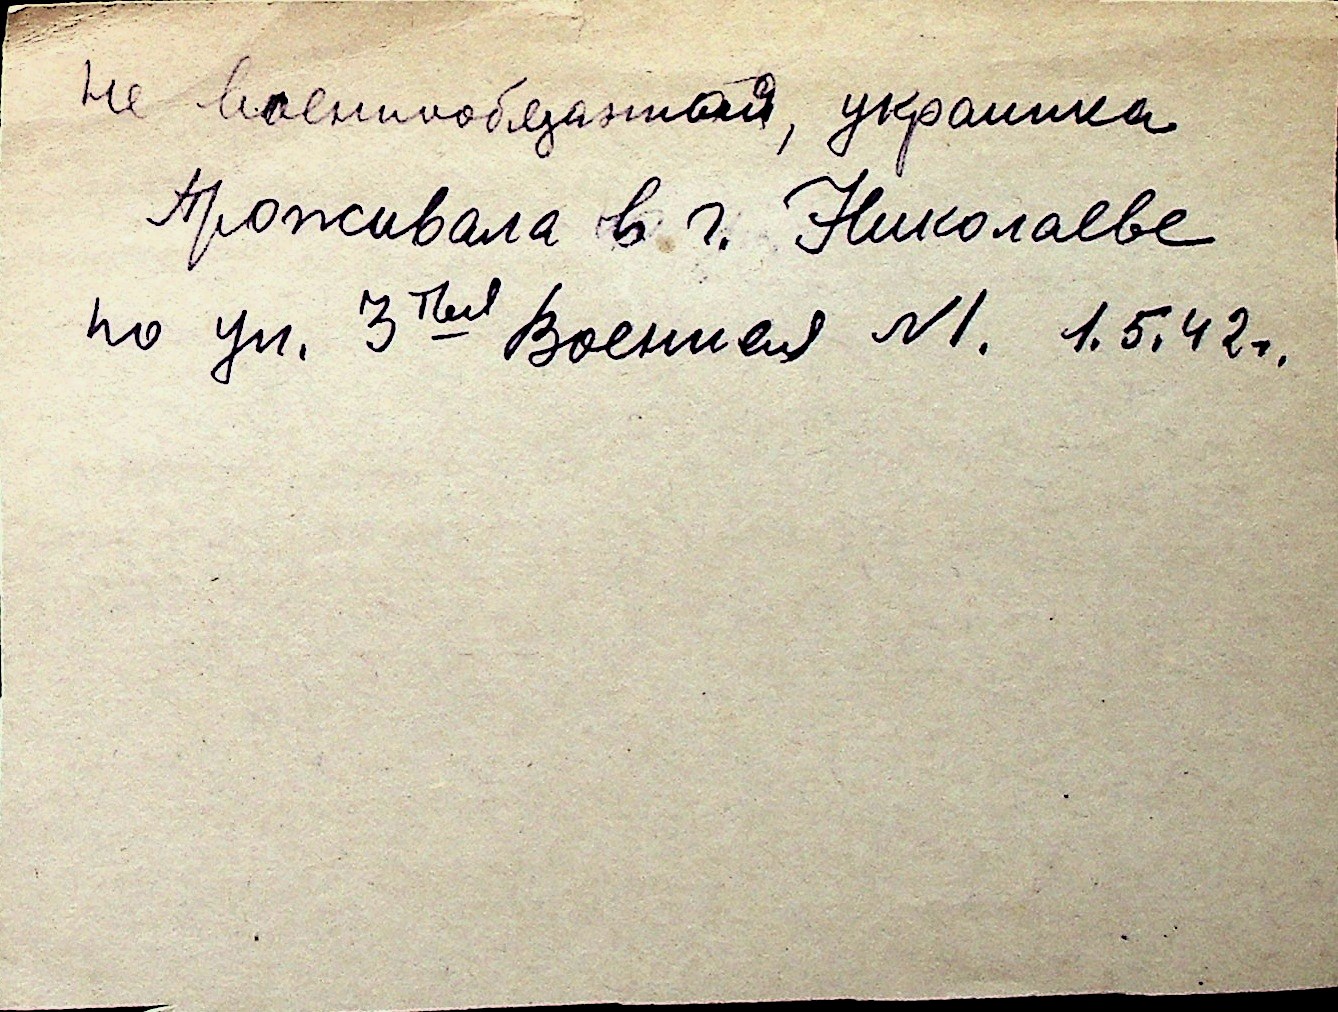 не военнообязаной, украинка
Проживала в г. Николаеве
по ул. 3тья Военная №1. 1.5.42г.